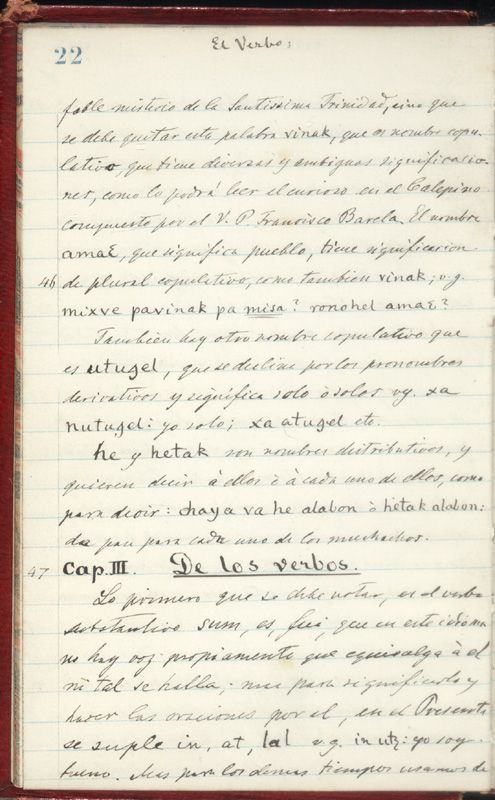 22
El Verbo:
fable misterio de la Santissima Trinidad, sino que
se debe quitar esta palabra vinak, que es nombre copu-
lativo, que tiene diversas y ambiguas significacio-
nes, como lo podrá leer el curioso en el Calepino
compuesto por el V. P. Francisco Barela. El nombre
amaɛ, que significa pueblo, tiene significacion
46 de plural copulativo, como tambien vinak; v.g.
mixve pavinak pa misa? ronohel amaɛ?
Tambien hay otro nombre copulativo que
es utuqel, que se declina por los pronombres
derivativos y significa solo ò solos vg. xa
nutuqel: yo solo; xa atuqel etc.
he y hetak son nombres distributivos, y
quieren decir à ellos ò à cada uno de ellos, como
para decir: chaya va he alabon ò hetak alabon:
da pan para cada uno de los muchachos.
47 Cap. III. De los verbos.
Lo primero que se debe notar, es el verbo
substantivo sum, es, fui, que en este idioma
no hay voz propiamente que equivalga à èl
ni tal se halla; mas para significarlo y
hacer las oraciones por el, en el Presente
se suple in, at, lal v.g. in utz: yo soy
bueno. Mas para los demas tiempos usamos de